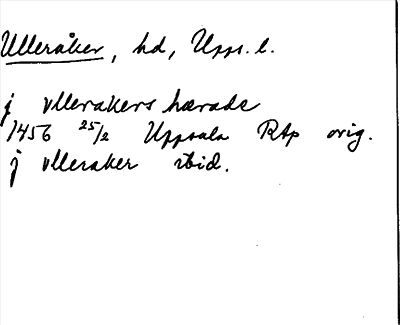 Ulleråker, hd, Upps. l.
j vllerakers hærade
1456 25/2 Uppsala RAp orig.
j vlleraker ibid.